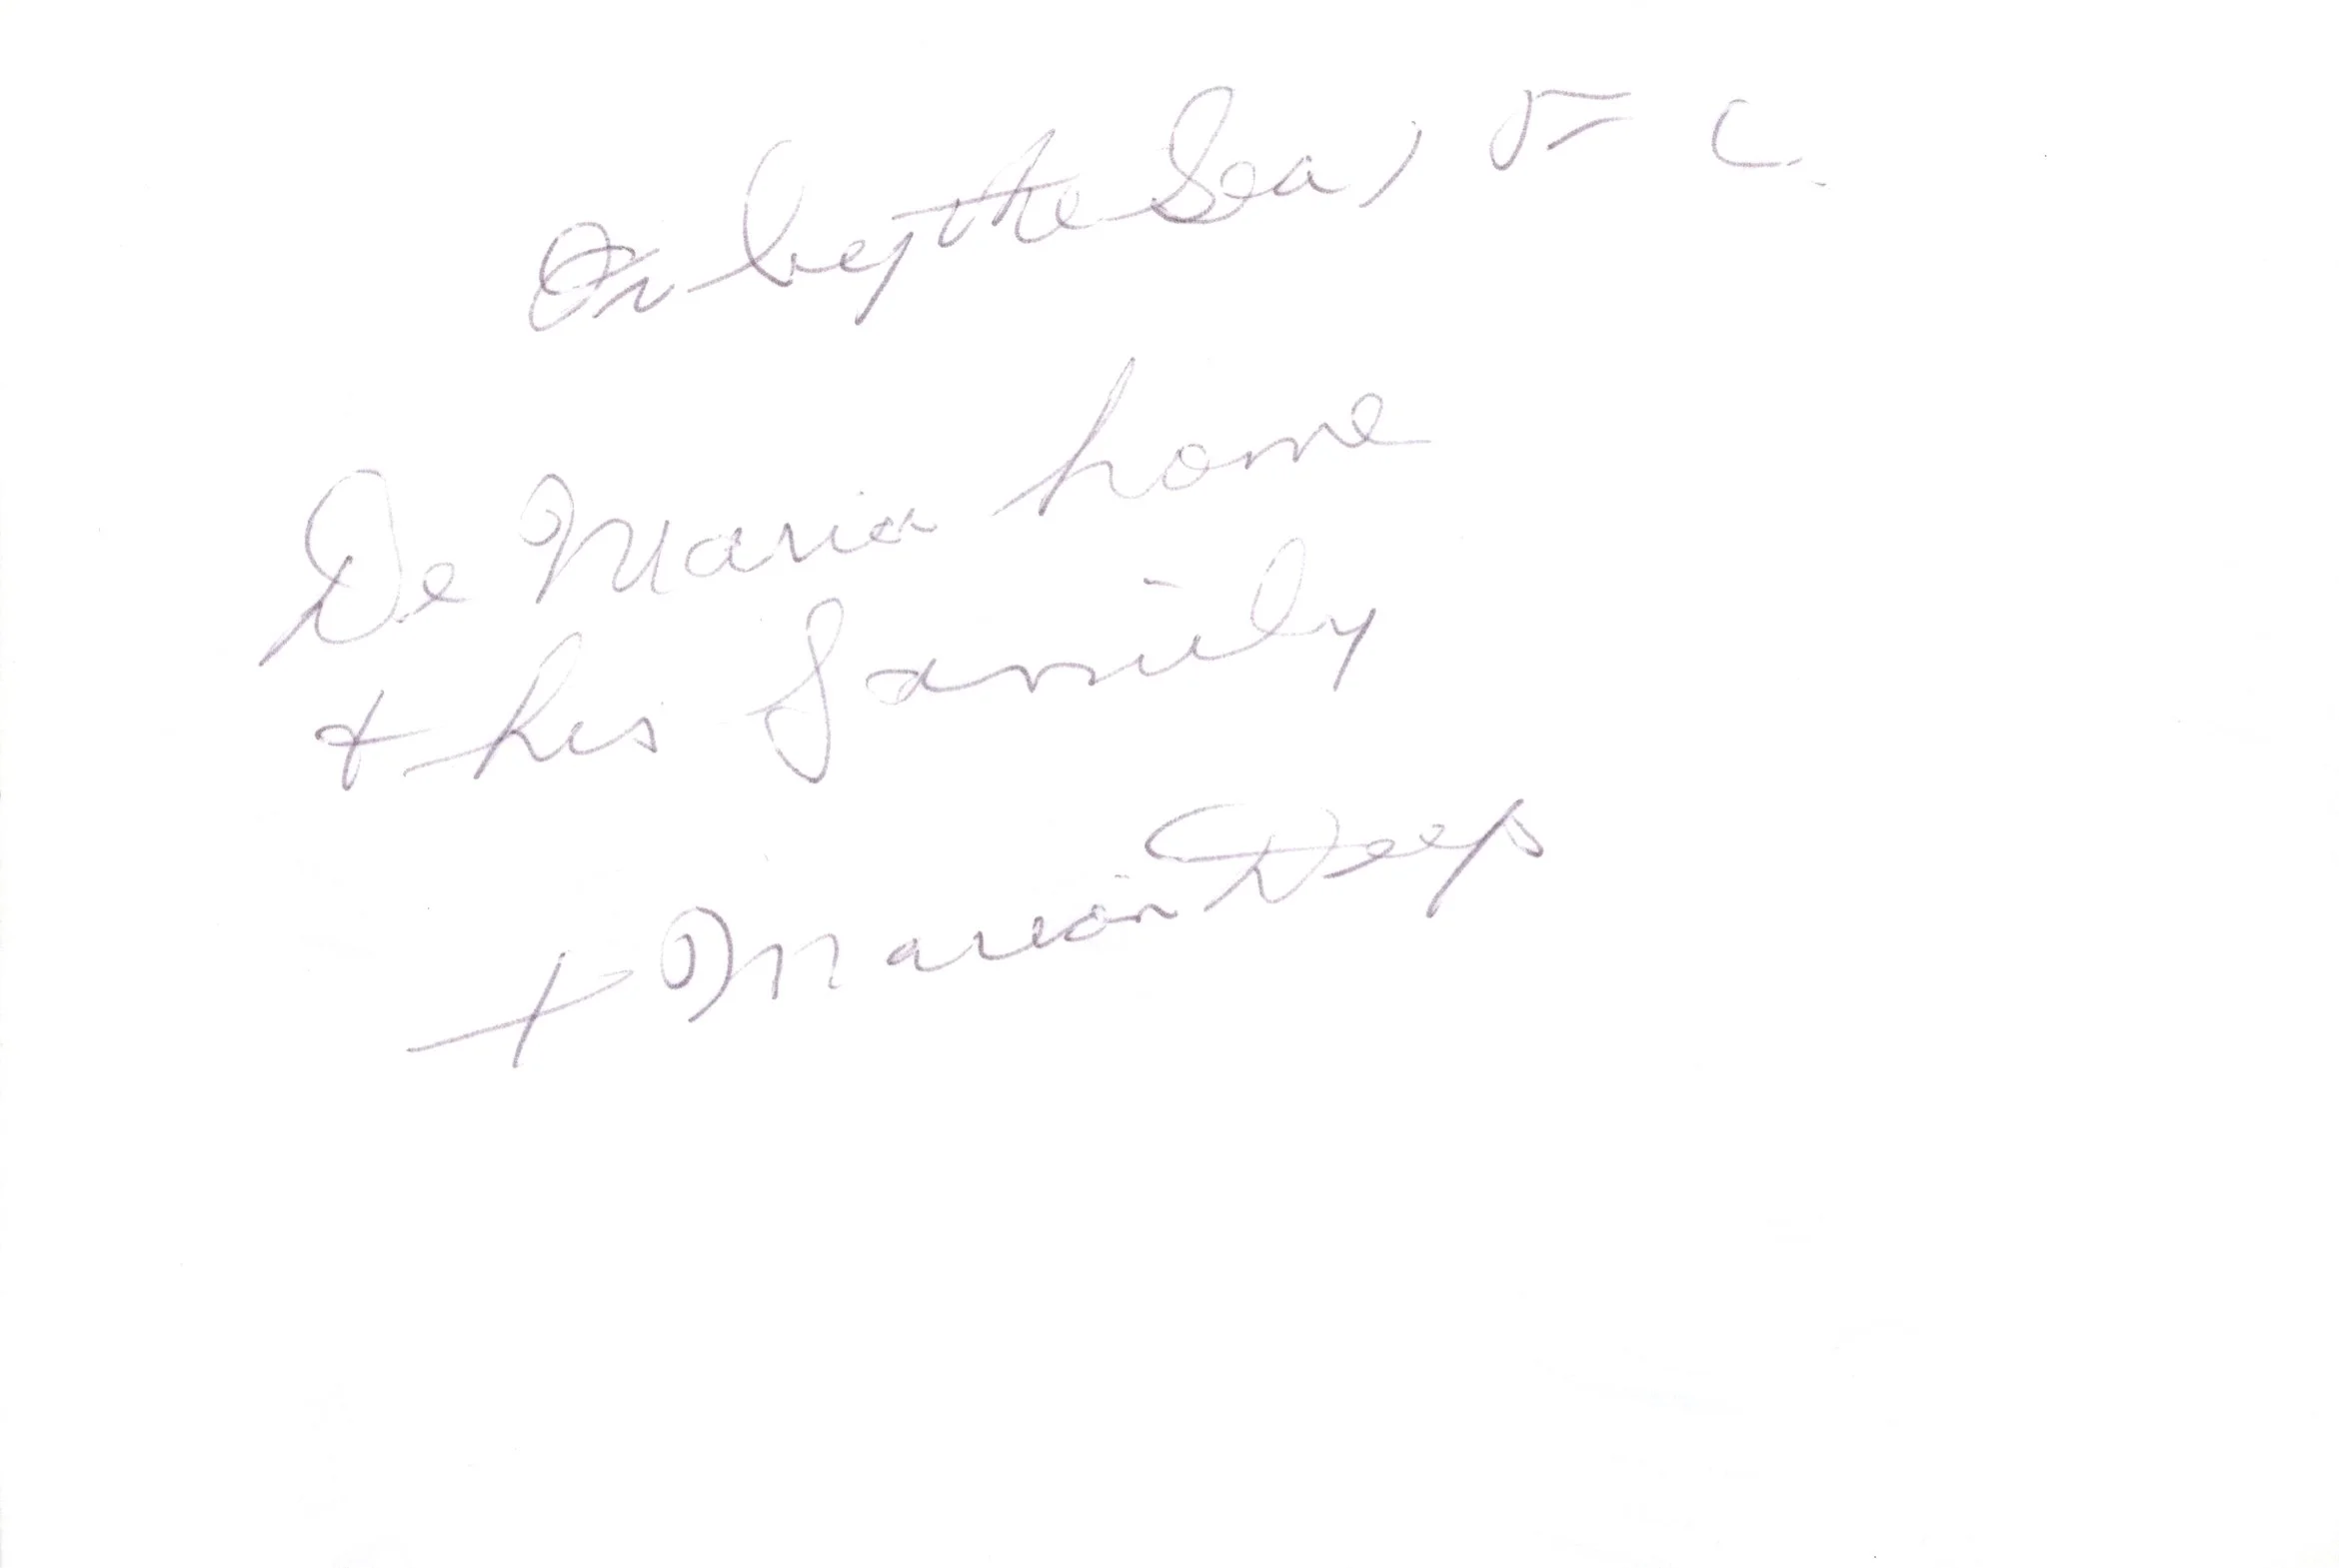 by the Sea, F C.
De Maria home
+ his family
+ Marion Deep